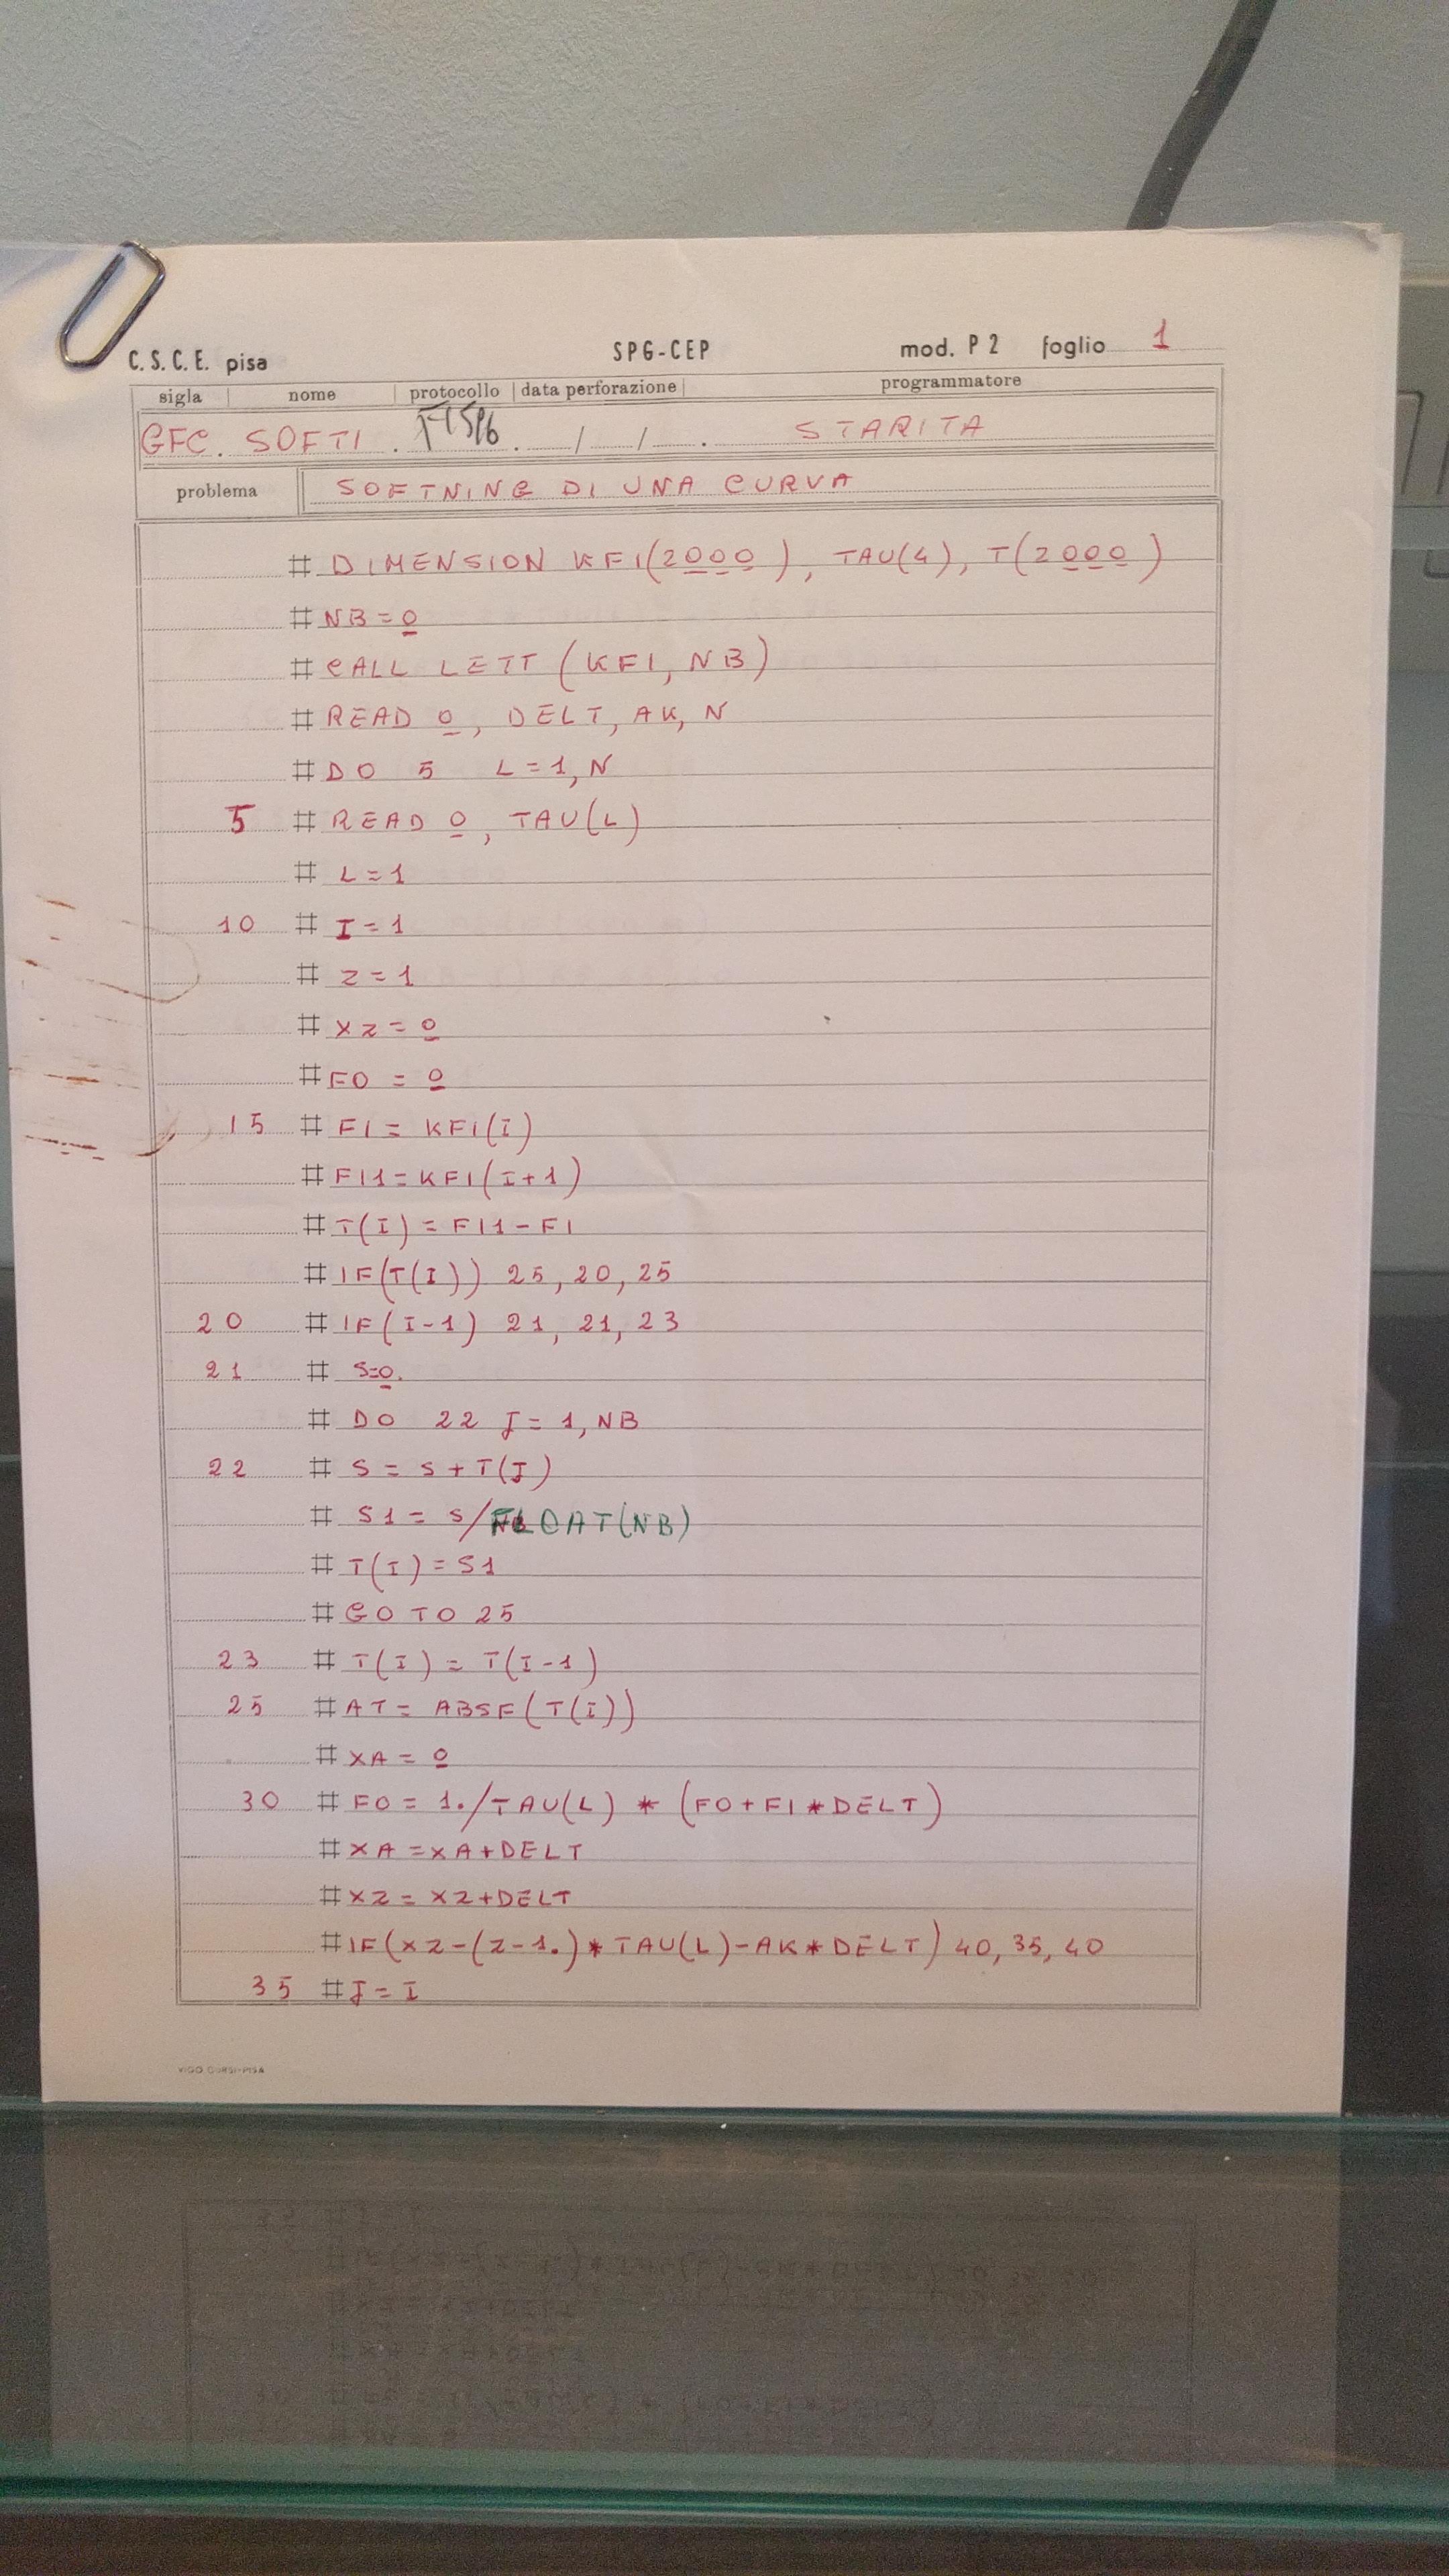 C. S. C. E. pisa SPG-CEP mod. P 2 foglio 1
sigla nome protocollo data perforazione programmatore
GFC. SOFTI . . / / . STARITA
problema SOFTNING DI UNA CURVA
# DIMENSION KFI(2000), TAU(4), T(2000)
# NB=0
# CALL LETT (KFI, NB)
# READ 0, DELT, AK, N
# DO 5 L=1, N
5 # READ 0, TAU(L)
# L=1
10 # I=1
# Z=1
# XZ=0
# FO = 0
15 # FI= KFI(I)
# FI1=KFI(I+1)
# T(I) = FI1-FI
# IF(T(I)) 25, 20, 25
20 # IF(I-1) 21, 21, 23
21 # S=0.
# DO 22 J=1, NB
22 # S = S+T(J)
# S1 = S/FLOAT(NB)
# T(I)=S1
# GO TO 25
23 # T(I) = T(I-1)
25 # AT= ABSF(T(I))
# XA=0
30 # FO= 1./TAU(L) * (FO+FI*DELT)
# XA=XA+DELT
# XZ=XZ+DELT
# IF(XZ-(Z-1.)*TAU(L)-AK*DELT) 40, 35, 40
35 # J=I
VIGO CURSI-PISA